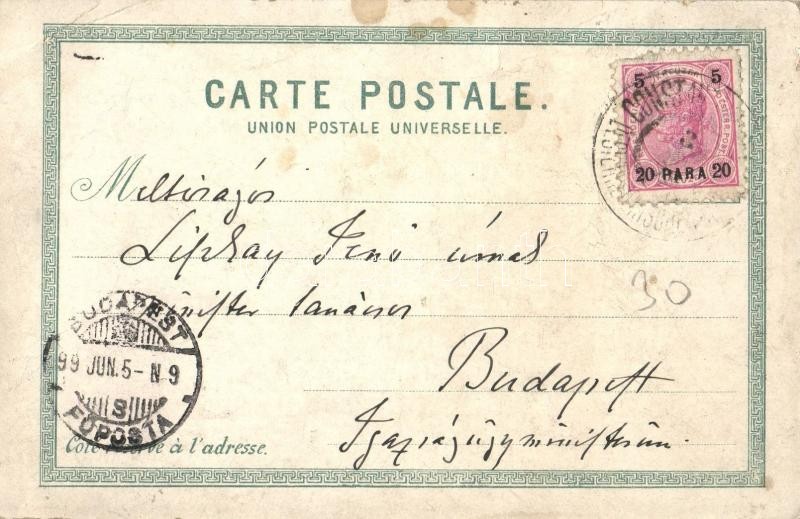 CARTE POSTALE.
UNION POSTALE UNIVERSELLE.
5 5
20 PARA 20
Lipthay Jenő úrnak
minister tanácsos
30
BUDAPEST
99 JUN. 5 - N 9
S
FŐPOSTA
Budapest
Igazságügyministerium.
Coté réservé à l'adresse.